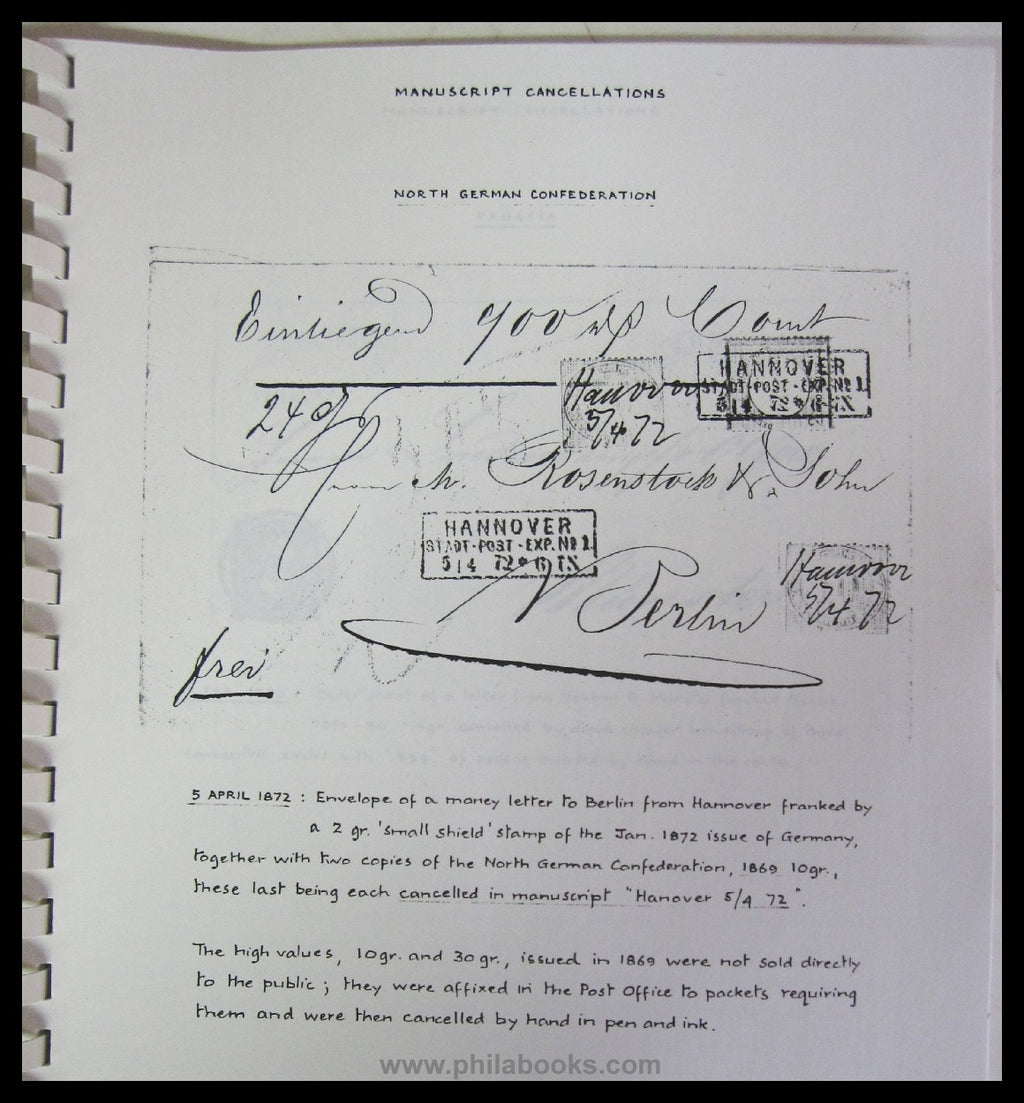 MANUSCRIPT CANCELLATIONS
NORTH GERMAN CONFEDERATION
Einliegend 900 Court
HANNOVER
STADT-POST-EXP. Nº 1
5 4 72
Hannover
5/4 72
24
M. Rosenstock & Sohn
HANNOVER
STADT-POST-EXP. Nº 1
5 4 72
Hannover
5/4 72
Berlin
frei
5 APRIL 1872 : Envelope of a money letter to Berlin from Hannover franked by
a 2 gr. 'small shield' stamp of the Jan. 1872 issue of Germany,
together with two copies of the North German Confederation, 1869 10gr.,
these last being each cancelled in manuscript "Hanover 5/4 72".
The high values, 10gr. and 30gr., issued in 1869 were not sold directly
to the public ; they were affixed in the Post Office to packets requiring
them and were then cancelled by hand in pen and ink.
www.philabooks.com